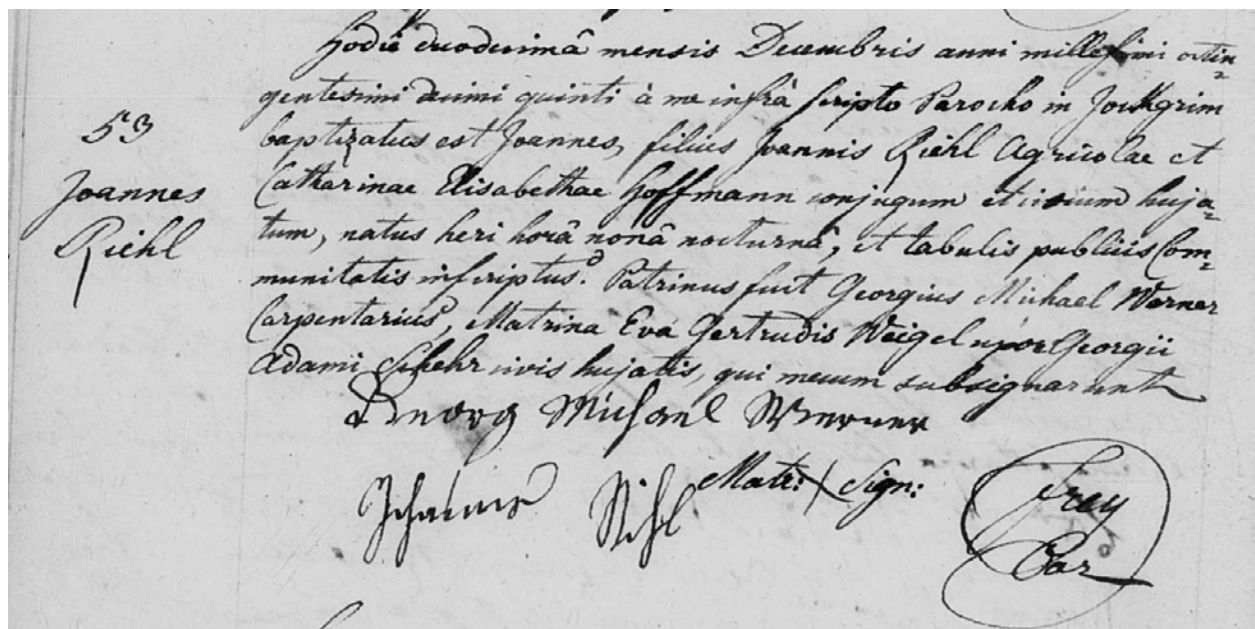 53
Joannes
Riehl
Hodie duodecimâ mensis Decembris anni millesimi octin=
gentesimi decimi quinti à me infrà scripto Parocho in Jockgrim
baptizatus est Joannes, filius Joannis Riehl Agricolae et
Catharinae Elisabethae Hoffmann conjugum et civium huja=
tum, natus heri horâ nonâ nocturnâ, et tabulis publicis Com=
munitatis inscriptus. Patrinus fuit Georgius Michael Werner
Carpentarius, Matrina Eva Gertrudis Weigel uxor Georgii
Adami Schehr civis hujatis, qui mecum subsignarunt
Georg Michael Werner
Johannes Rihl Matr: X Sign:
Frey
Par